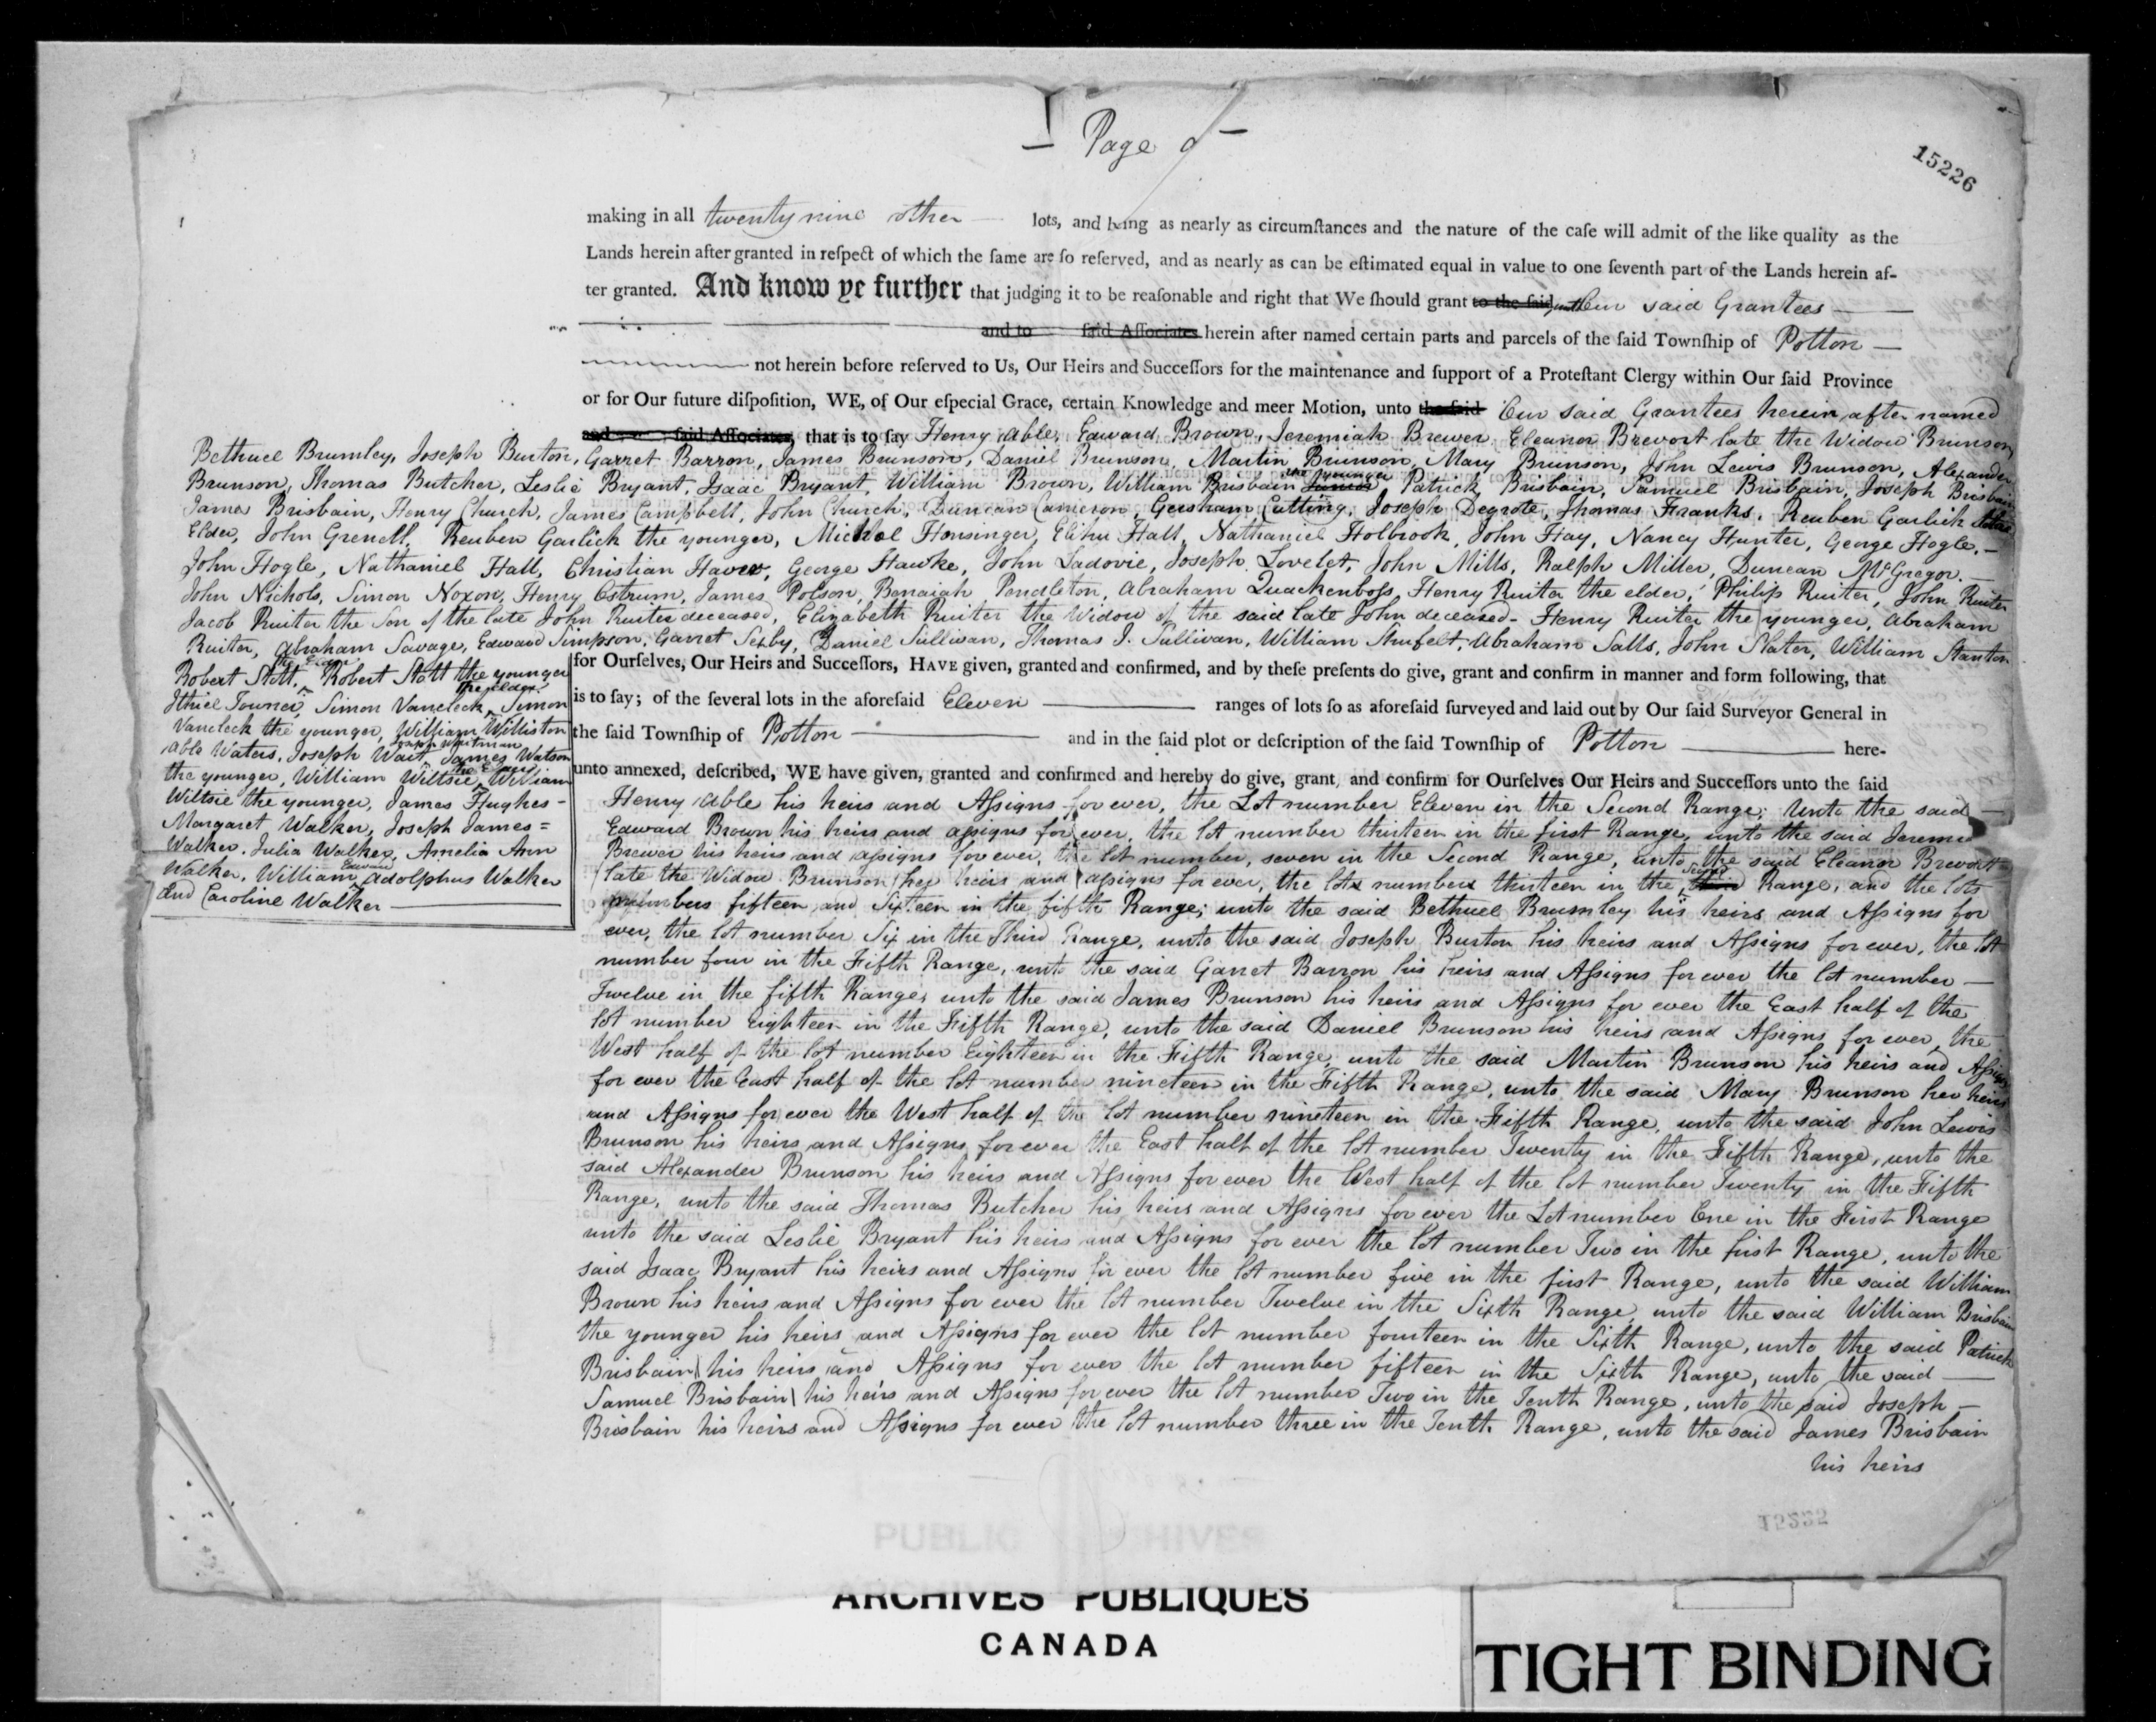 — Page 9 —
15226
making in all twenty nine other lots, and being as nearly as circumſtances and the nature of the caſe will admit of the like quality as the
Lands herein after granted in reſpect of which the ſame are ſo reſerved, and as nearly as can be eſtimated equal in value to one ſeventh part of the Lands herein af-
ter granted. And know ye further that judging it to be reaſonable and right that We ſhould grant to the ſaid unto Our said Grantees —
and to ſaid Aſſociates herein after named certain parts and parcels of the ſaid Townſhip of Potton —
not herein before reſerved to Us, Our Heirs and Succeſſors for the maintenance and ſupport of a Proteſtant Clergy within Our ſaid Province
or for Our future diſpoſition, WE, of Our eſpecial Grace, certain Knowledge and meer Motion, unto the ſaid Our said Grantees herein after named
ſaid Aſſociates, that is to ſay Henry Able, Edward Brown, Jeremiah Brewer, Eleanor Brevort late the Widow Brunson,
Bethuel Brumley, Joseph Burton, Garret Barron, James Brunson, Daniel Brunson, Martin Brunson, Mary Brunson, John Lewis Brunson, Alexander
Brunson, Thomas Butcher, Leslie Bryant, Isaac Bryant, William Brown, William Brisbain the younger Junior, Patrick Brisbain, Samuel Brisbain, Joseph Brisbain
James Brisbain, Henry Church, James Campbell, John Church, Duncan Cameron, Gersham Cutting, Joseph Degrote, Thomas Franks, Reuben Garlick the
Elder, John Grenell, Reuben Garlick the younger, Michal Hensinger, Elihu Hall, Nathaniel Holbrook, John Hay, Nancy Hunter, George Hogle, —
John Hogle, Nathaniel Hall, Christian Haver, George Hawke, John Ladovie, Joseph Lovelet, John Mills, Ralph Miller, Duncan McGregor. —
John Nichols, Simon Noxon, Henry Ostrum, James Polson, Banaiah Pendleton, Abraham Quackenboss, Henry Ruiter the elder, Philip Ruiter, John Ruiter
Jacob Ruiter the Son of the late John Ruiter deceased, Elizabeth Ruiter the Widow of the said late John deceased - Henry Ruiter the younger, Abraham
Ruiter, Abraham Savage, Edward Simpson, Garret Sixby, Daniel Sullivan, Thomas J. Sullivan, William Shufelt, Abraham Salls, John Slater, William Stanton
Robert Stott, the Elder Robert Stott the younger
Ithiel Towner, Simon Vancleck, the elder Simon
Vancleck the younger, William Williston
Able Waters, Joseph Wait, Joseph Waitman James Watson
the younger, William Wiltsie, the Elder William
Wiltsie the younger, James Hughes -
Margaret Walker, Joseph James =
Walker, Julia Walker, Amelia Ann
Walker, William Edward Adolphus Walker
and Caroline Walker —
for Ourſelves, Our Heirs and Succeſſors, HAVE given, granted and confirmed, and by theſe preſents do give, grant and confirm in manner and form following, that
is to ſay; of the ſeveral lots in the aforeſaid Eleven — ranges of lots ſo as aforeſaid ſurveyed and laid out by Our ſaid Surveyor General in
the ſaid Townſhip of Potton — and in the ſaid plot or deſcription of the ſaid Townſhip of Potton — here-
unto annexed, deſcribed, WE have given, granted and confirmed and hereby do give, grant, and confirm for Ourſelves Our Heirs and Succeſſors unto the ſaid
Henry Able his heirs and Assigns for ever, the Lot number Eleven in the Second Range; unto the said —
Edward Brown his heirs and assigns for ever, the lot number thirteen in the first Range, unto the said Jeremia
Brewer his heirs and assigns for ever, the lot number, seven in the Second Range, unto the said Eleanor Brevort
(late the Widow Brunson) her heirs and assigns for ever, the lots numbers thirteen in the Second third Range, and the lots
numbers fifteen, and Sixteen in the fifth Range; unto the said Bethuel Brumley his heirs and Assigns for
ever, the lot number Six in the Third Range, unto the said Joseph Burton his heirs and Assigns for ever, the lot
number four in the Fifth Range, unto the said Garret Barron his heirs and Assigns for ever the lot number —
Twelve in the fifth Range, unto the said James Brunson his heirs and Assigns for ever the East half of the
lot number Eighteen in the Fifth Range, unto the said Daniel Brunson his heirs and Assigns for ever, the
West half of the lot number Eighteen in the Fifth Range, unto the said Martin Brunson his heirs and Assigns
for ever the East half of the lot number nineteen in the Fifth Range, unto the said Mary Brunson her heirs
and Assigns for ever the West half of the lot number nineteen in the Fifth Range, unto the said John Lewis
Brunson his heirs and Assigns for ever the East half of the lot number Twenty in the Fifth Range, unto the
said Alexander Brunson his heirs and Assigns for ever the West half of the lot number Twenty in the Fifth
Range, unto the said Thomas Butcher his heirs and Assigns for ever the Lot number One in the First Range
unto the said Leslie Bryant his heirs and Assigns for ever the lot number Two in the first Range, unto the
said Isaac Bryant his heirs and Assigns for ever the lot number five in the first Range, unto the said William
Brown his heirs and Assigns for ever the lot number Twelve in the Sixth Range, unto the said William Brisbain
the younger his heirs and Assigns for ever the lot number fourteen in the Sixth Range, unto the said Patrick
Brisbain his heirs and Assigns for ever the lot number fifteen in the Sixth Range, unto the said —
Samuel Brisbain his heirs and Assigns for ever the lot number Two in the Tenth Range, unto the said Joseph —
Brisbain his heirs and Assigns for ever the lot number three in the Tenth Range, unto the said James Brisbain
his heirs
15225
PUBLIC ARCHIVES
ARCHIVES PUBLIQUES
CANADA
TIGHT BINDING